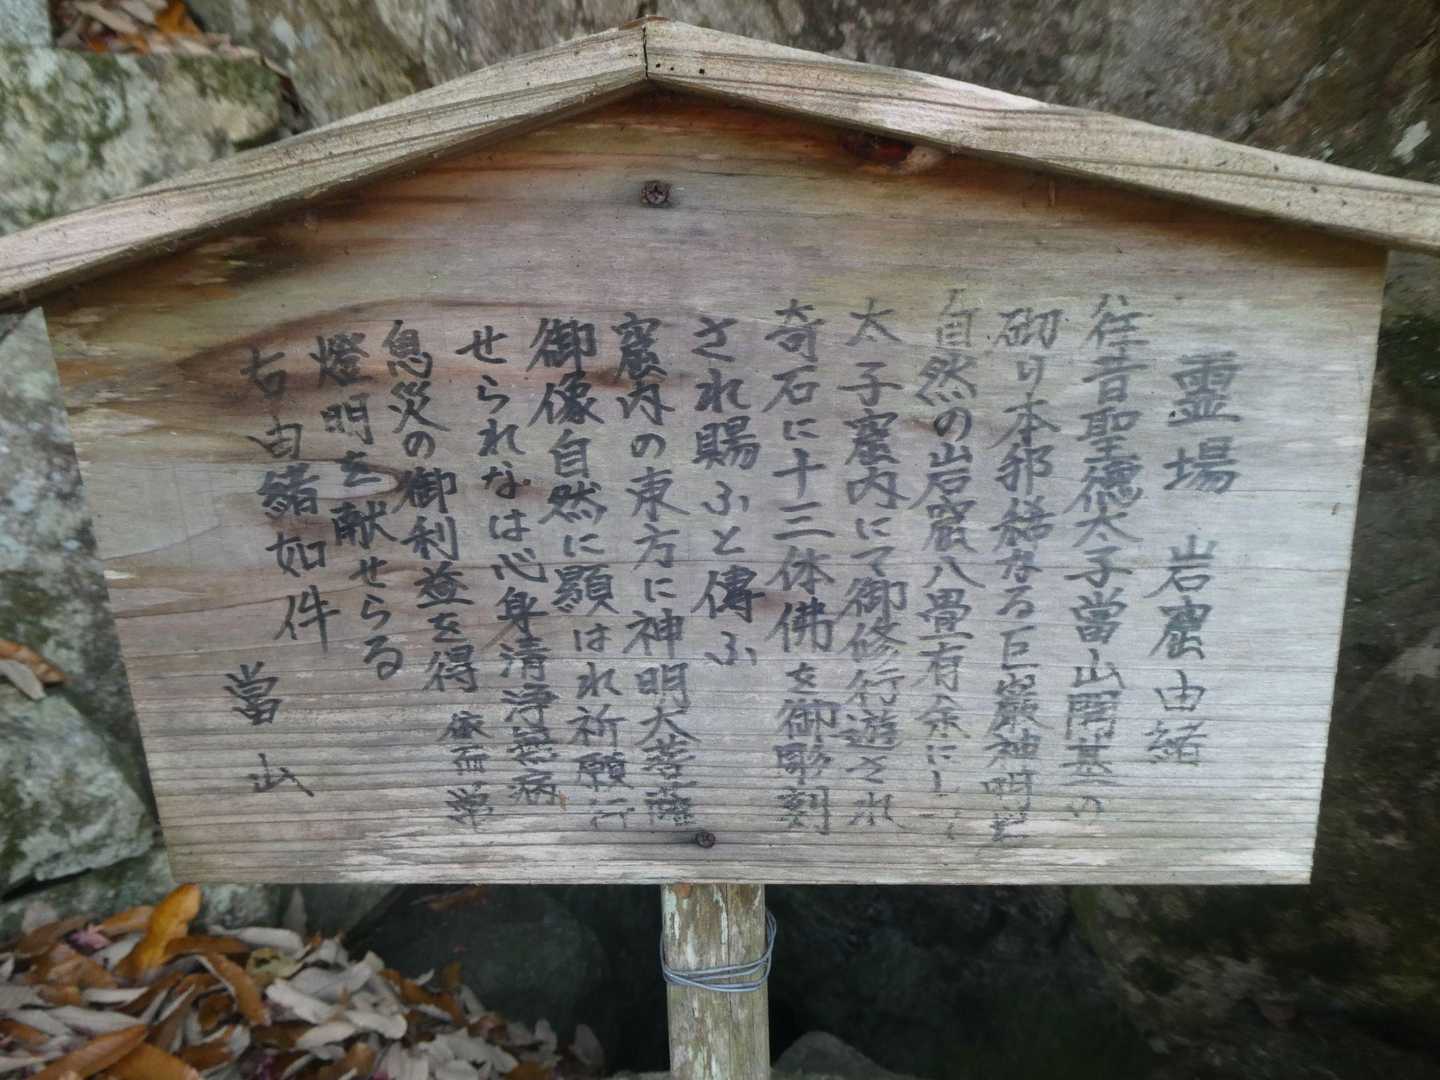 霊場 岩窟由緒
往昔聖徳太子當山開基の
砌り本邦稀なる巨巌神明
自然の岩窟八畳有余にして
太子窟内にて御修行遊され
奇石に十三体佛を御彫刻
され賜ふと傳ふ
窟内の東方に神明大菩薩
御像自然に顯はれ祈願行
せられなは心身清浄無病
息災の御利益を得 依而常
燈明を献せらる
右由緒如件
當山